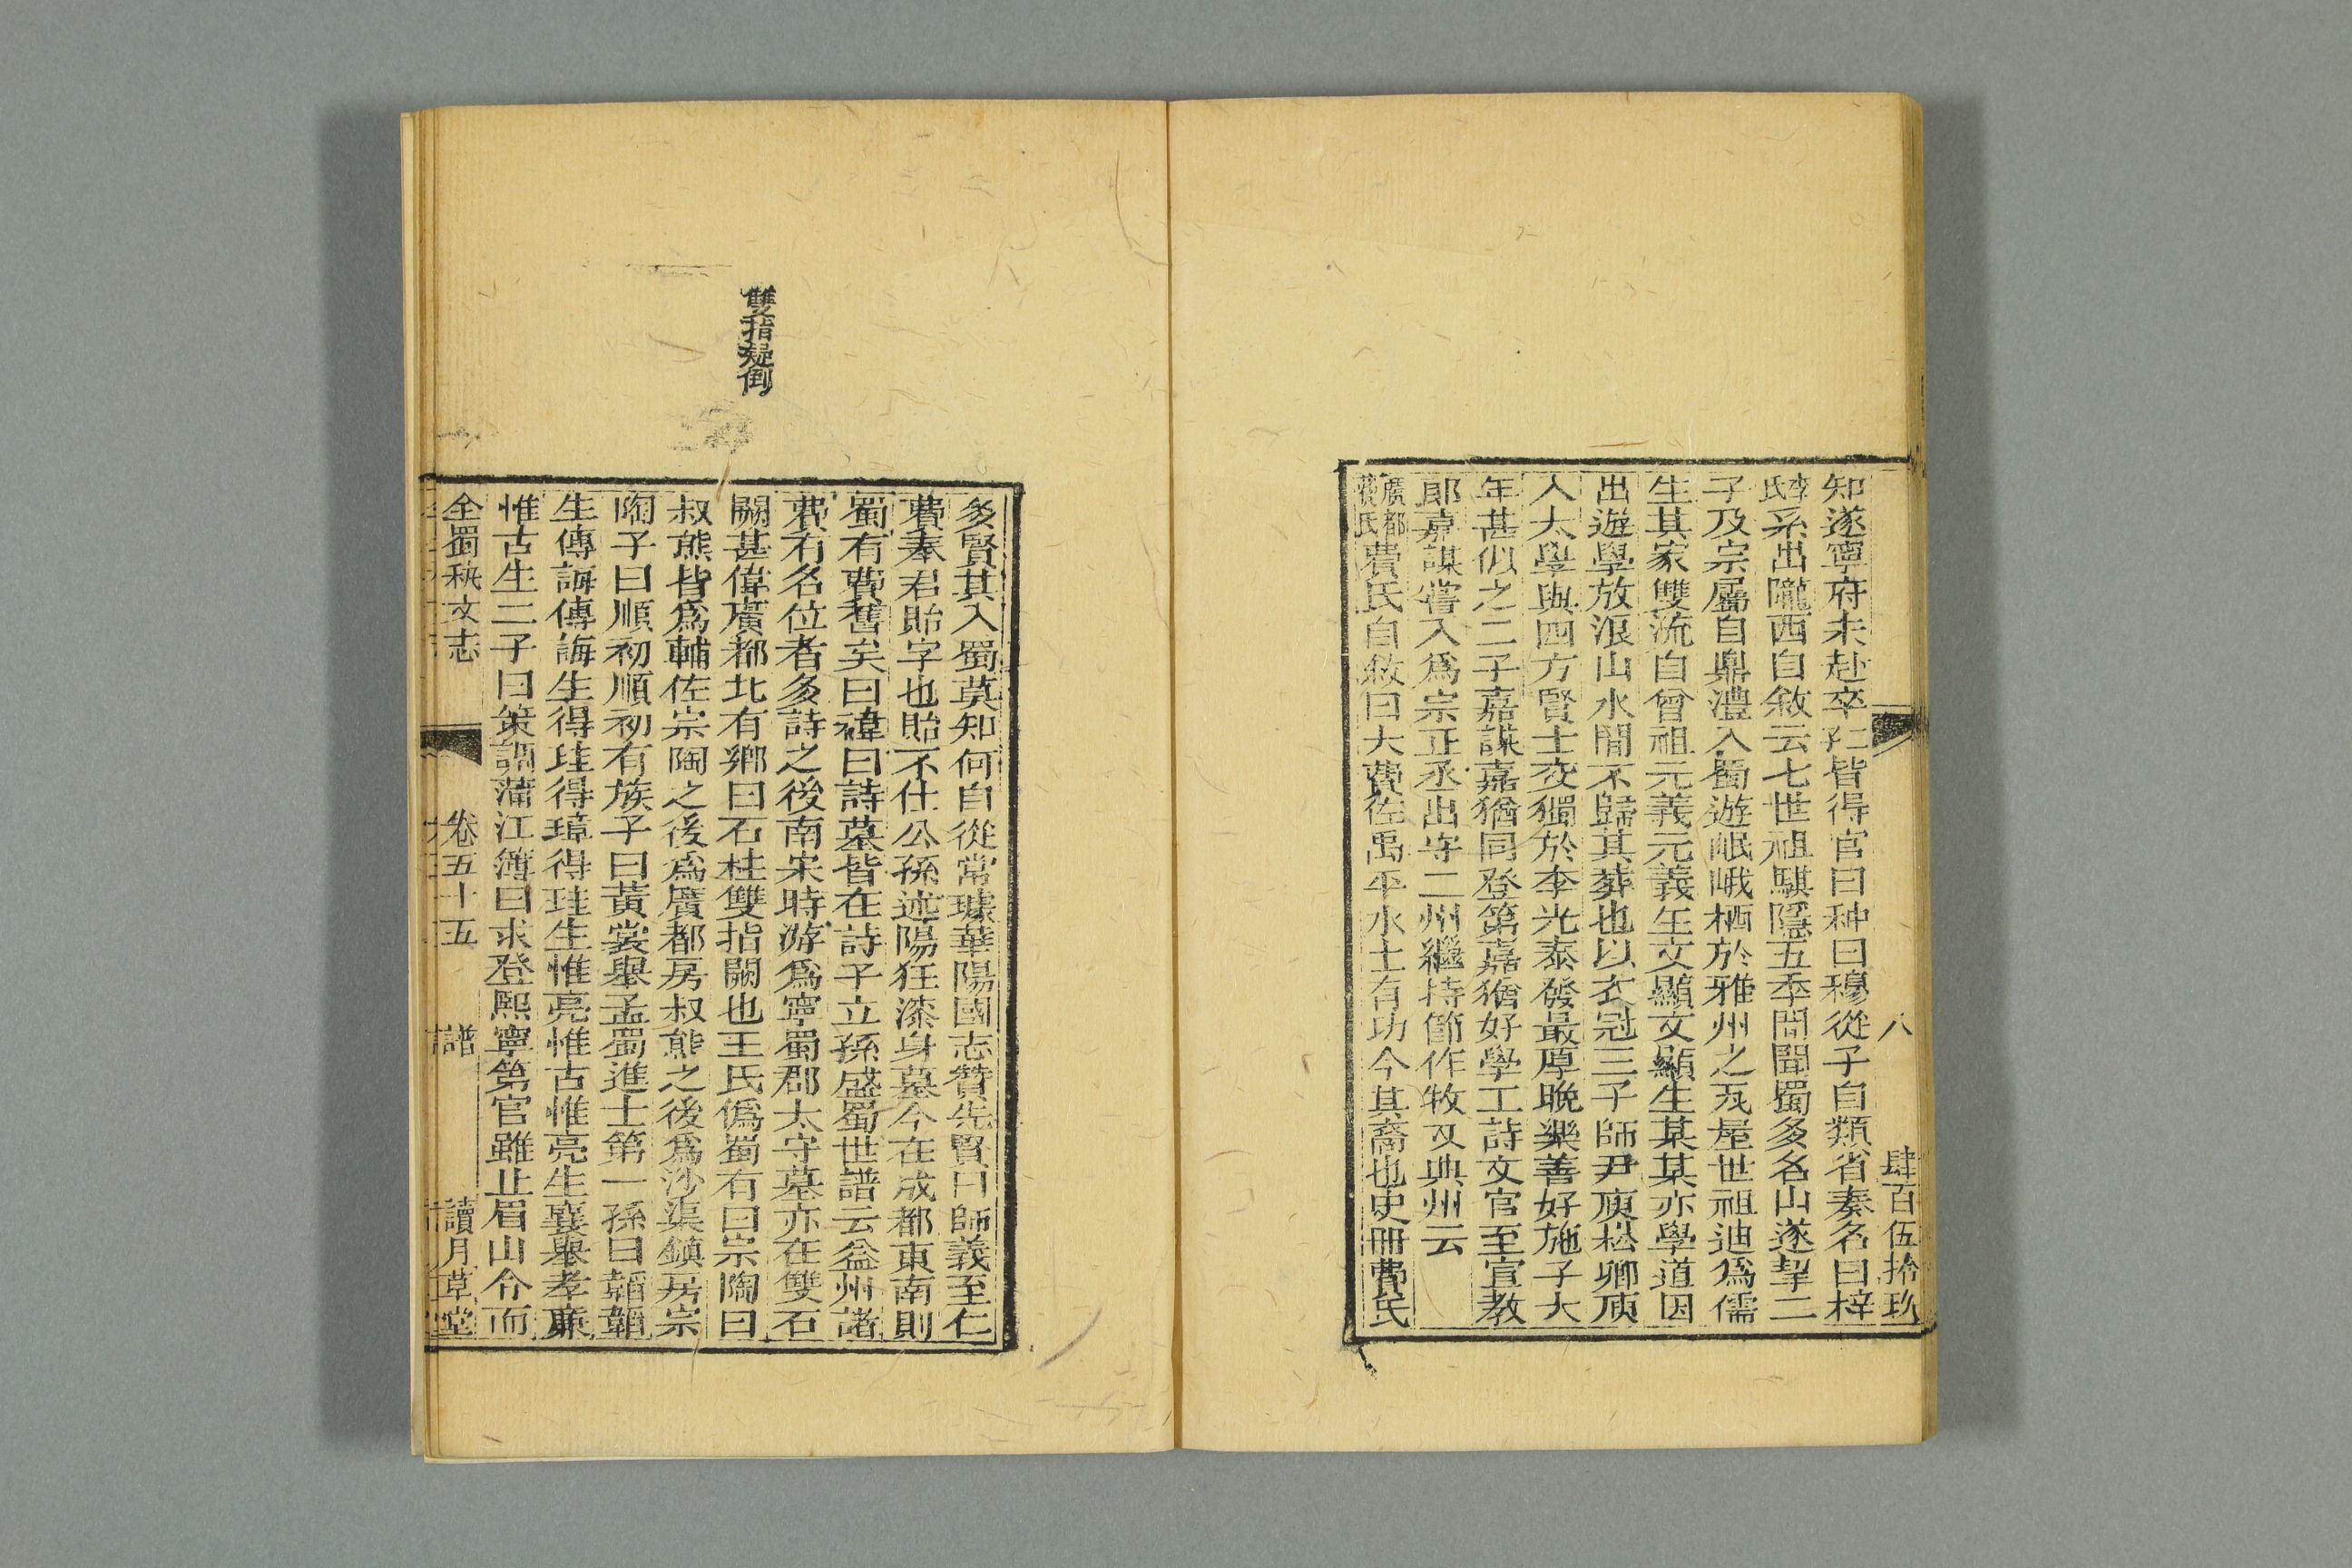 八
肆百伍拾玖
知遂寧府未赴卒弘皆得官曰种曰穆從子自類省奏名曰梓
李氏系出隴西自敘云七世祖騏隱五季間聞蜀多名山遂挈二
子及宗屬自鼎澧入蜀遊岷峨栖於雅州之瓦屋世祖迪爲儒
生其家雙流自曾祖元義元義生文顯文顯生某某亦學道因
出遊學放浪山水間不歸其葬也以衣冠三子師尹庾松卿庾
入太學與四方賢士交獨於李光泰發最厚晚樂善好施子大
年甚似之二子嘉謀嘉猶同登第嘉猶好學工詩文官至宣教
郎嘉謀嘗入爲宗正丞出守二州繼持節作牧又典州云
廣都費氏費氏自敘曰大費佐禹平水土有功今其裔也史冊費氏
雙指疑倒
多賢其入蜀莫知何自從常璩華陽國志贊先賢曰師義至仁
費奉君貽字也貽不仕公孫述陽狂漆身墓今在成都東南則
蜀有費舊矣曰禕曰詩墓皆在詩子立孫盛蜀世譜云益州諸
費有名位者多詩之後南宋時游爲寧蜀郡太守墓亦在雙石
闕甚偉廣都北有鄉曰石柱雙指闕也王氏僞蜀有曰宗陶曰
叔熊皆爲輔佐宗陶之後爲廣都房叔熊之後爲沙渠鎮房宗
陶子曰順初順初有族子曰黃裳舉孟蜀進士第一孫曰韜韜
生傳誨傳誨生得珪得璋得珪生惟亮惟古惟亮生襄舉孝廉
惟古生二子曰策調蒲江簿曰求登熙寧第官雖止眉山令而
全蜀秇文志
卷五十五
譜
讀月草堂